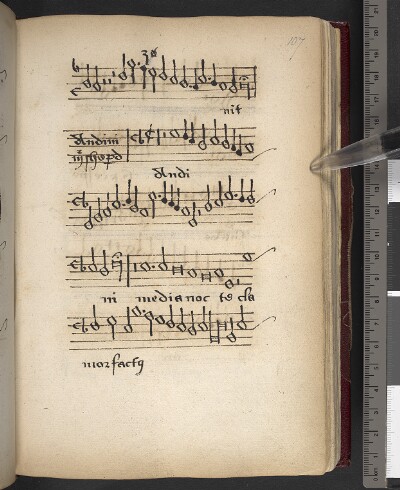 107
nit
Andivi
Andi
ni media noc te cla
mor factꝰ